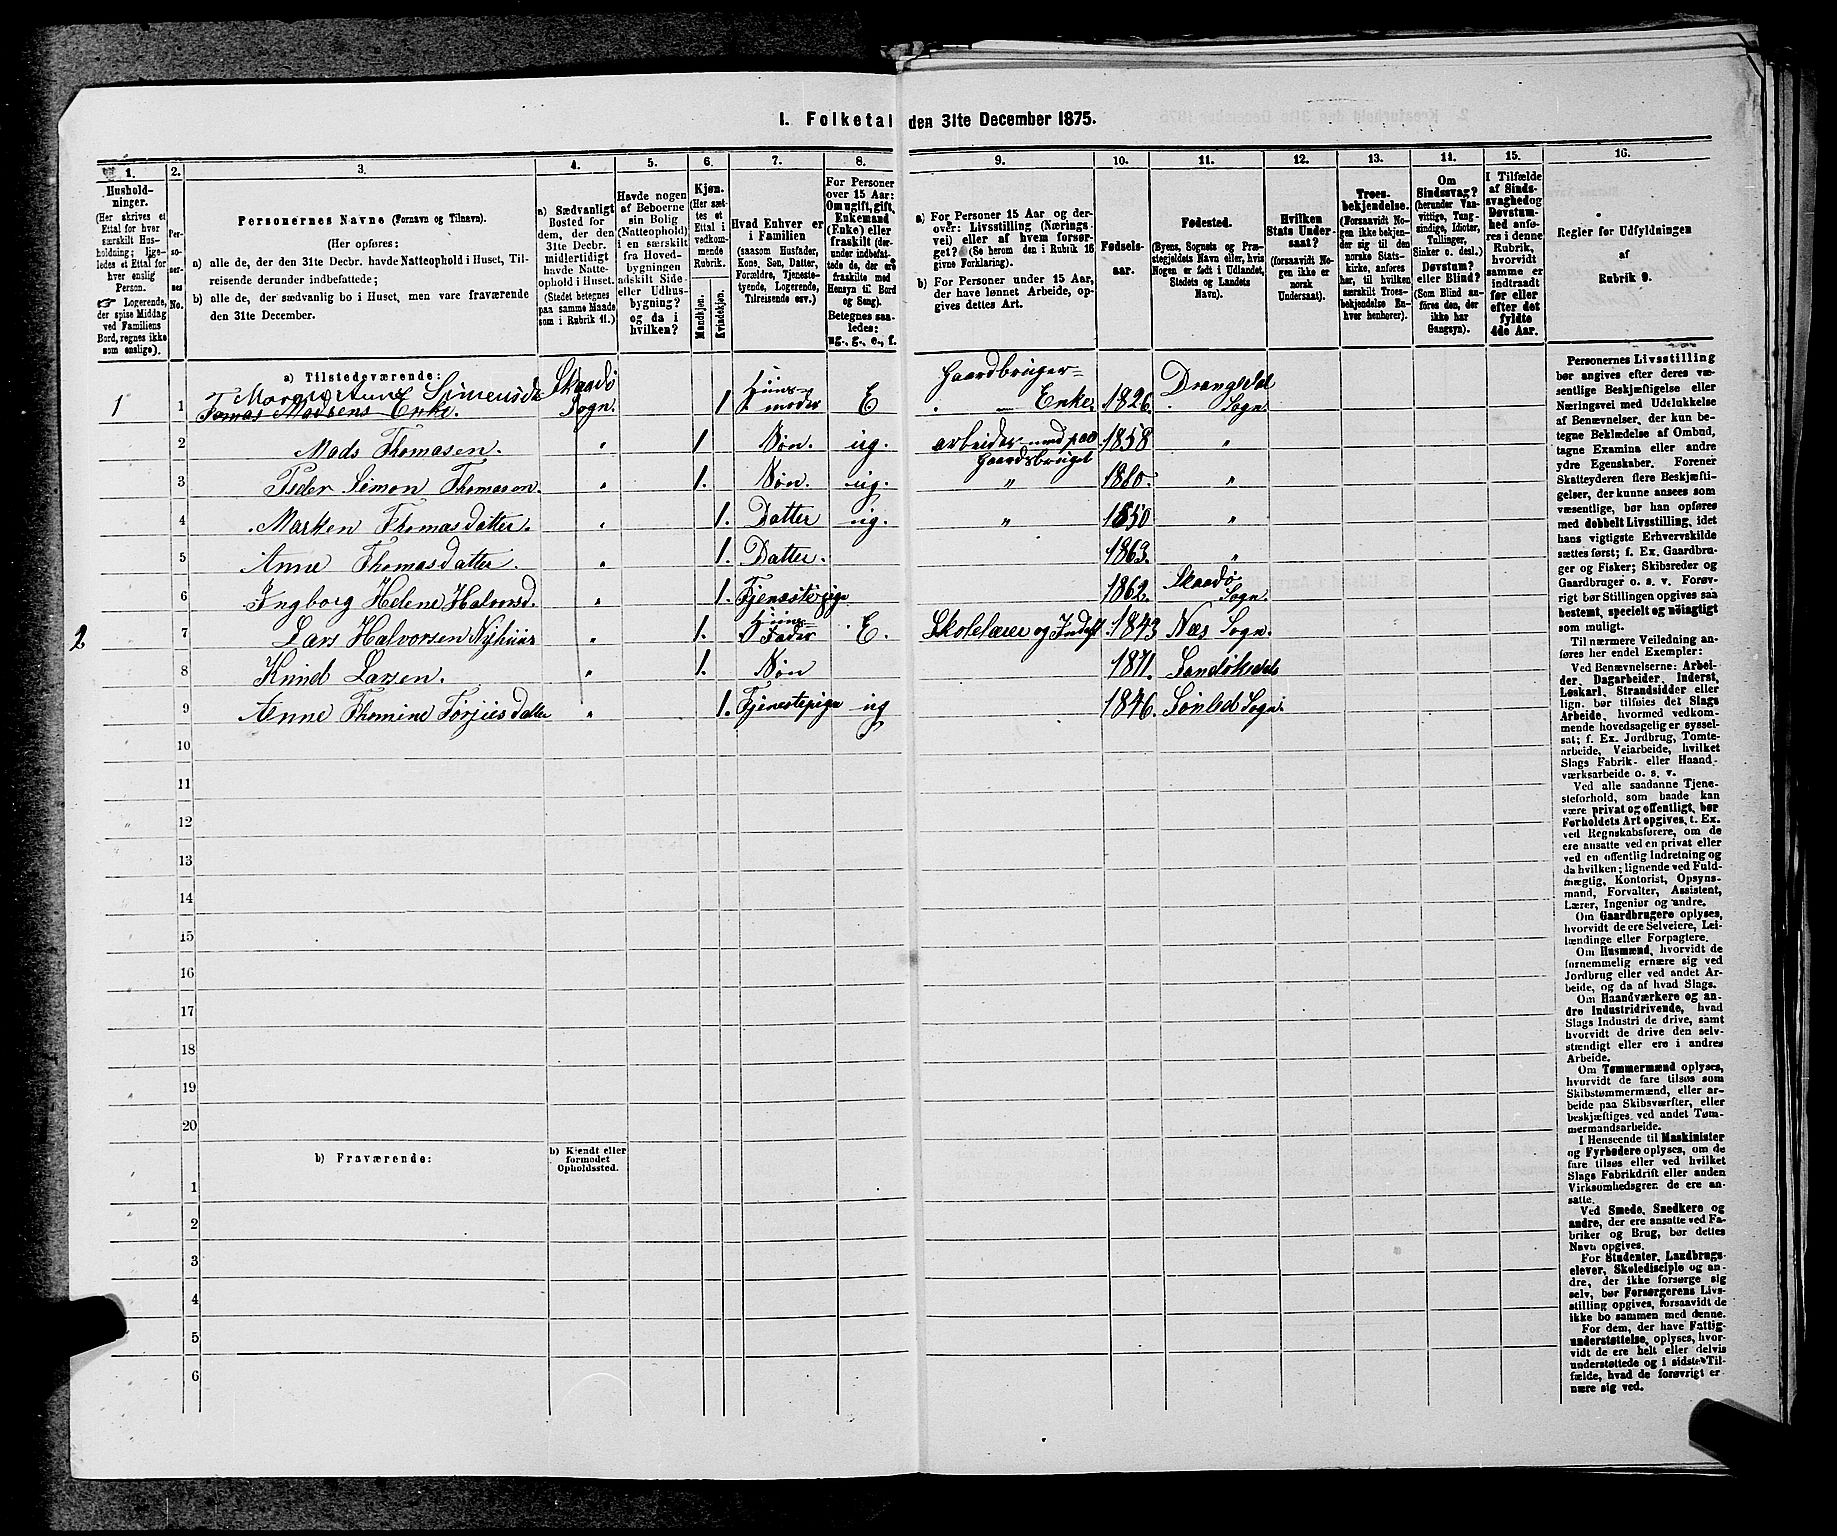 I. Folketal den 31te December 1875.
1. 2. 3. 4. 5. 6. 7. 8. 9. 10. 11. 12. 13. 14. 15. 16.
Hushold-
ninger.
(Her skrives et
Ettal for hver
særskilt Hus-
holdning; lige-
ledes et Ettal for
hver enslig
Person.
☞ Logerende,
der spise Middag
ved Familiens
Bord, regnes ikke
som enslige).
Per-
so-
ner-
nes
No.
Personernes Navne (Fornavn og Tilnavn).
(Her opføres:
a) alle de, der den 31te Decbr. havde Natteophold i Huset, Til-
reisende derunder indbefattede;
b) alle de, der sædvanlig bo i Huset, men vare fraværende
den 31te December.
a) Sædvanligt
Bosted for
dem, der den
31te Decbr.
midlertidigt
havde Natte-
ophold i Huset.
(Stedet betegnes
paa samme Maade
som i Rubrik 11.)
Havde nogen
af Beboerne
sin Bolig
(Natteophold)
i en særskilt
fra Hoved-
bygningen
adskilt Side-
eller Udhus-
bygning?
og da i
hvilken?
Kjøn.
(Her sæt-
tes et
Ettal i
vedkom-
mende
Rubrik.
Mandkjøn.
Kvindekjøn.
Hvad Enhver er
i Familien
(saasom Husfader,
Kone, Søn, Datter,
Forældre, Tjeneste-
tyende, Logerende,
Tilreisende osv.)
For Personer
over 15 Aar:
Om ugift, gift,
Enkemand
(Enke) eller
fraskilt (der-
under indbefat-
tede de, der ere
fraskilte med
Hensyn til Bord
og Seng).
Betegnes saa-
ledes:
ug., g., e., f.
a) For Personer 15 Aar og der-
over: Livsstilling (Nærings-
vei) eller af hvem forsør-
get? (Se herom den i Rubrik 16
givne Forklaring).
b) For Personer under 15 Aar,
der have lønnet Arbeide, op-
gives dettes Art.
Fødsels-
aar.
Fødested.
(Byens, Sognets og Præ-
stegjeldets Navn eller, hvis
Nogen er født i Udlandet,
Stedets og Landets
Navn).
Hvilken
Stats Under-
saat?
(forsaavidt No-
gen ikke er
norsk
Undersaat).
Troes-
bekjendelse.
(Forsaavidt No-
gen ikke bekjen-
der sig til den
norske Stats-
kirke, anføres
her, til hvilken
særskilt Troes-
bekjendelse En-
hver henhører).
Om
Sindssvag?
(herunder Van-
vittige, Tung-
sindige, Idioter,
Tullinger,
Sinker o. desl.)
Døvstum?
eller Blind?
(Som Blind an-
føres den, der
ikke har
Gangsyn).
I Tilfælde
af Sinds-
svaghed og
Døvstum-
hed anfø-
res i denne
Rubrik,
hvorvidt
samme er
indtraadt
før eller
efter det
fyldte
4de Aar.
Regler for Udfyldningen
af
Rubrik 9.
a) Tilstedeværende:
1 1 Maren Anne Simensd. Skaadø Huus- Gaardbruger- Drangedal
Tomas Madsens Enke. Sogn. 1 moder E „ — Enke 1826. Sogn.
2 Mads Thomasen. „ 1. Søn. ug. arbeider med paa 1858 „
Gaardsbruget
3 Peder Simon Thomasen. „ 1. Søn. ug. „ 1860. „
4 Marken Thomasdatter. „ 1. Datter ug. „ 1850 „
5 Anne Thomasdatter. „ 1. Datter. 1863. „
6 Ingborg Helene Halvorsd. „ 1. Tjenestepige 1862. Skaadø Sogn.
2 7 Lars Halvorsen Nyhuus „ 1. Huus-Fader E. Skolelærer og Inderst. 1843 Næs Sogn.
8 Knud Larsen. „ 1. Søn 1871. Sandøkedal
9 Anne Thomine Torjusdatter „ 1. Tjenestepige ug 1846. Sønled Sogn.
10
11
12
13
14
15
16
17
18
19
20
b) Fraværende:
b) Kjendt eller
formodet
Opholdssted.
1
2
3
4
5
6
Personernes Livsstilling
bør angives efter deres væ-
sentlige Beskjæftigelse eller
Næringsvei med Udelukkelse
af Benævnelser, der kun be-
tegne Beklædelse af Ombud,
tagne Examina eller andre
ydre Egenskaber. Forener
Skatteyderen flere Beskjæfti-
gelser, der kunne ansees som
væsentlige, bør han opføres
med dobbelt Livsstilling, idet
hans vigtigste Erhvervskilde
sættes først; f. Ex. Gaardbru-
ger og Fisker; Skibsreder og
Gaardbruger o. s. v. Forøv-
rigt bør Stillingen opgives saa
bestemt, specielt og nøiagtigt
som muligt.
Til nærmere Veiledning an-
føres her endel Exempler:
Ved Benævnelserne: Arbei-
der, Dagarbeider, Inderst,
Løskarl, Strandsidder eller
lign. bør tilføies det Slags
Arbeide, hvormed vedkom-
mende hovedsagelig er syssel-
sat; f. Ex. Jordbrug, Tomte-
arbeide, Veiarbeide, hvilket
Slags Fabrik- eller Haand-
værksarbeide o. s. v.
Ved alle saadanne Tjene-
steforhold, som baade kan
være privat og offentligt, bør
Forholdets Art opgives, t. Ex.
ved Regnskabsførere, om de
ere ansatte ved en privat eller
ved en offentlig Indretning og
da hvilken; lignende ved Fuld-
mægtig, Kontorist, Opsyns-
mand, Forvalter, Assistent,
Lærer, Ingeniør og andre.
Om Gaardbrugere oplyses,
hvorvidt de ere Selveiere, Lei-
lændinge eller Forpagtere.
Om Husmænd, hvorvidt de
fornemmelig ernære sig ved
Jordbrug eller ved andet Ar-
beide, og da af hvad Slags.
Om Haandværkere og an-
dre Industridrivende, hvad
Slags Industri de drive, samt
hvorvidt de drive den selv-
stændigt eller ere i andres
Arbeide.
Om Tømmermænd oplyses,
hvorvidt de fare tilsøs som
Skibstømmermænd, eller ar-
beide paa Skibsværfter, eller
beskjæftiges ved andet Tøm-
mermandsarbeide.
I Henseende til Maskinister
og Fyrbødere oplyses, om de
fare tilsøs eller ved hvilket
Slags Fabrikdrift eller anden
Virksomhedsgren de ere an-
satte.
Ved Smede, Snedkere og
andre, der ere ansatte ved Fa-
briker og Brug, bør dettes
Navn opgives.
For Studenter, Landbrugs-
elever, Skoledisciple og an-
dre, der ikke forsørge sig
selv, bør Forsørgerens Livs-
stilling opgives, forsaavidt de
ikke bo sammen med denne.
For dem, der have Fattig-
understøttelse, oplyses, hvor-
vidt de ere helt eller delvis
understøttede og i sidste Til-
fælde, hvad de forøvrigt er-
nære sig ved.